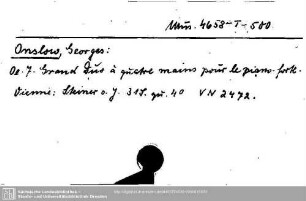 Mus. 4658-T-500
Onslow, Georges:
Op. 7. Grand Duo à quatre mains pour le piano-forte.
Vienne: Steiner o. J. 31 S. qu. 4° VN 2472.
Sächsische Landesbibliothek -
Staats- und Universitätsbibliothek Dresden